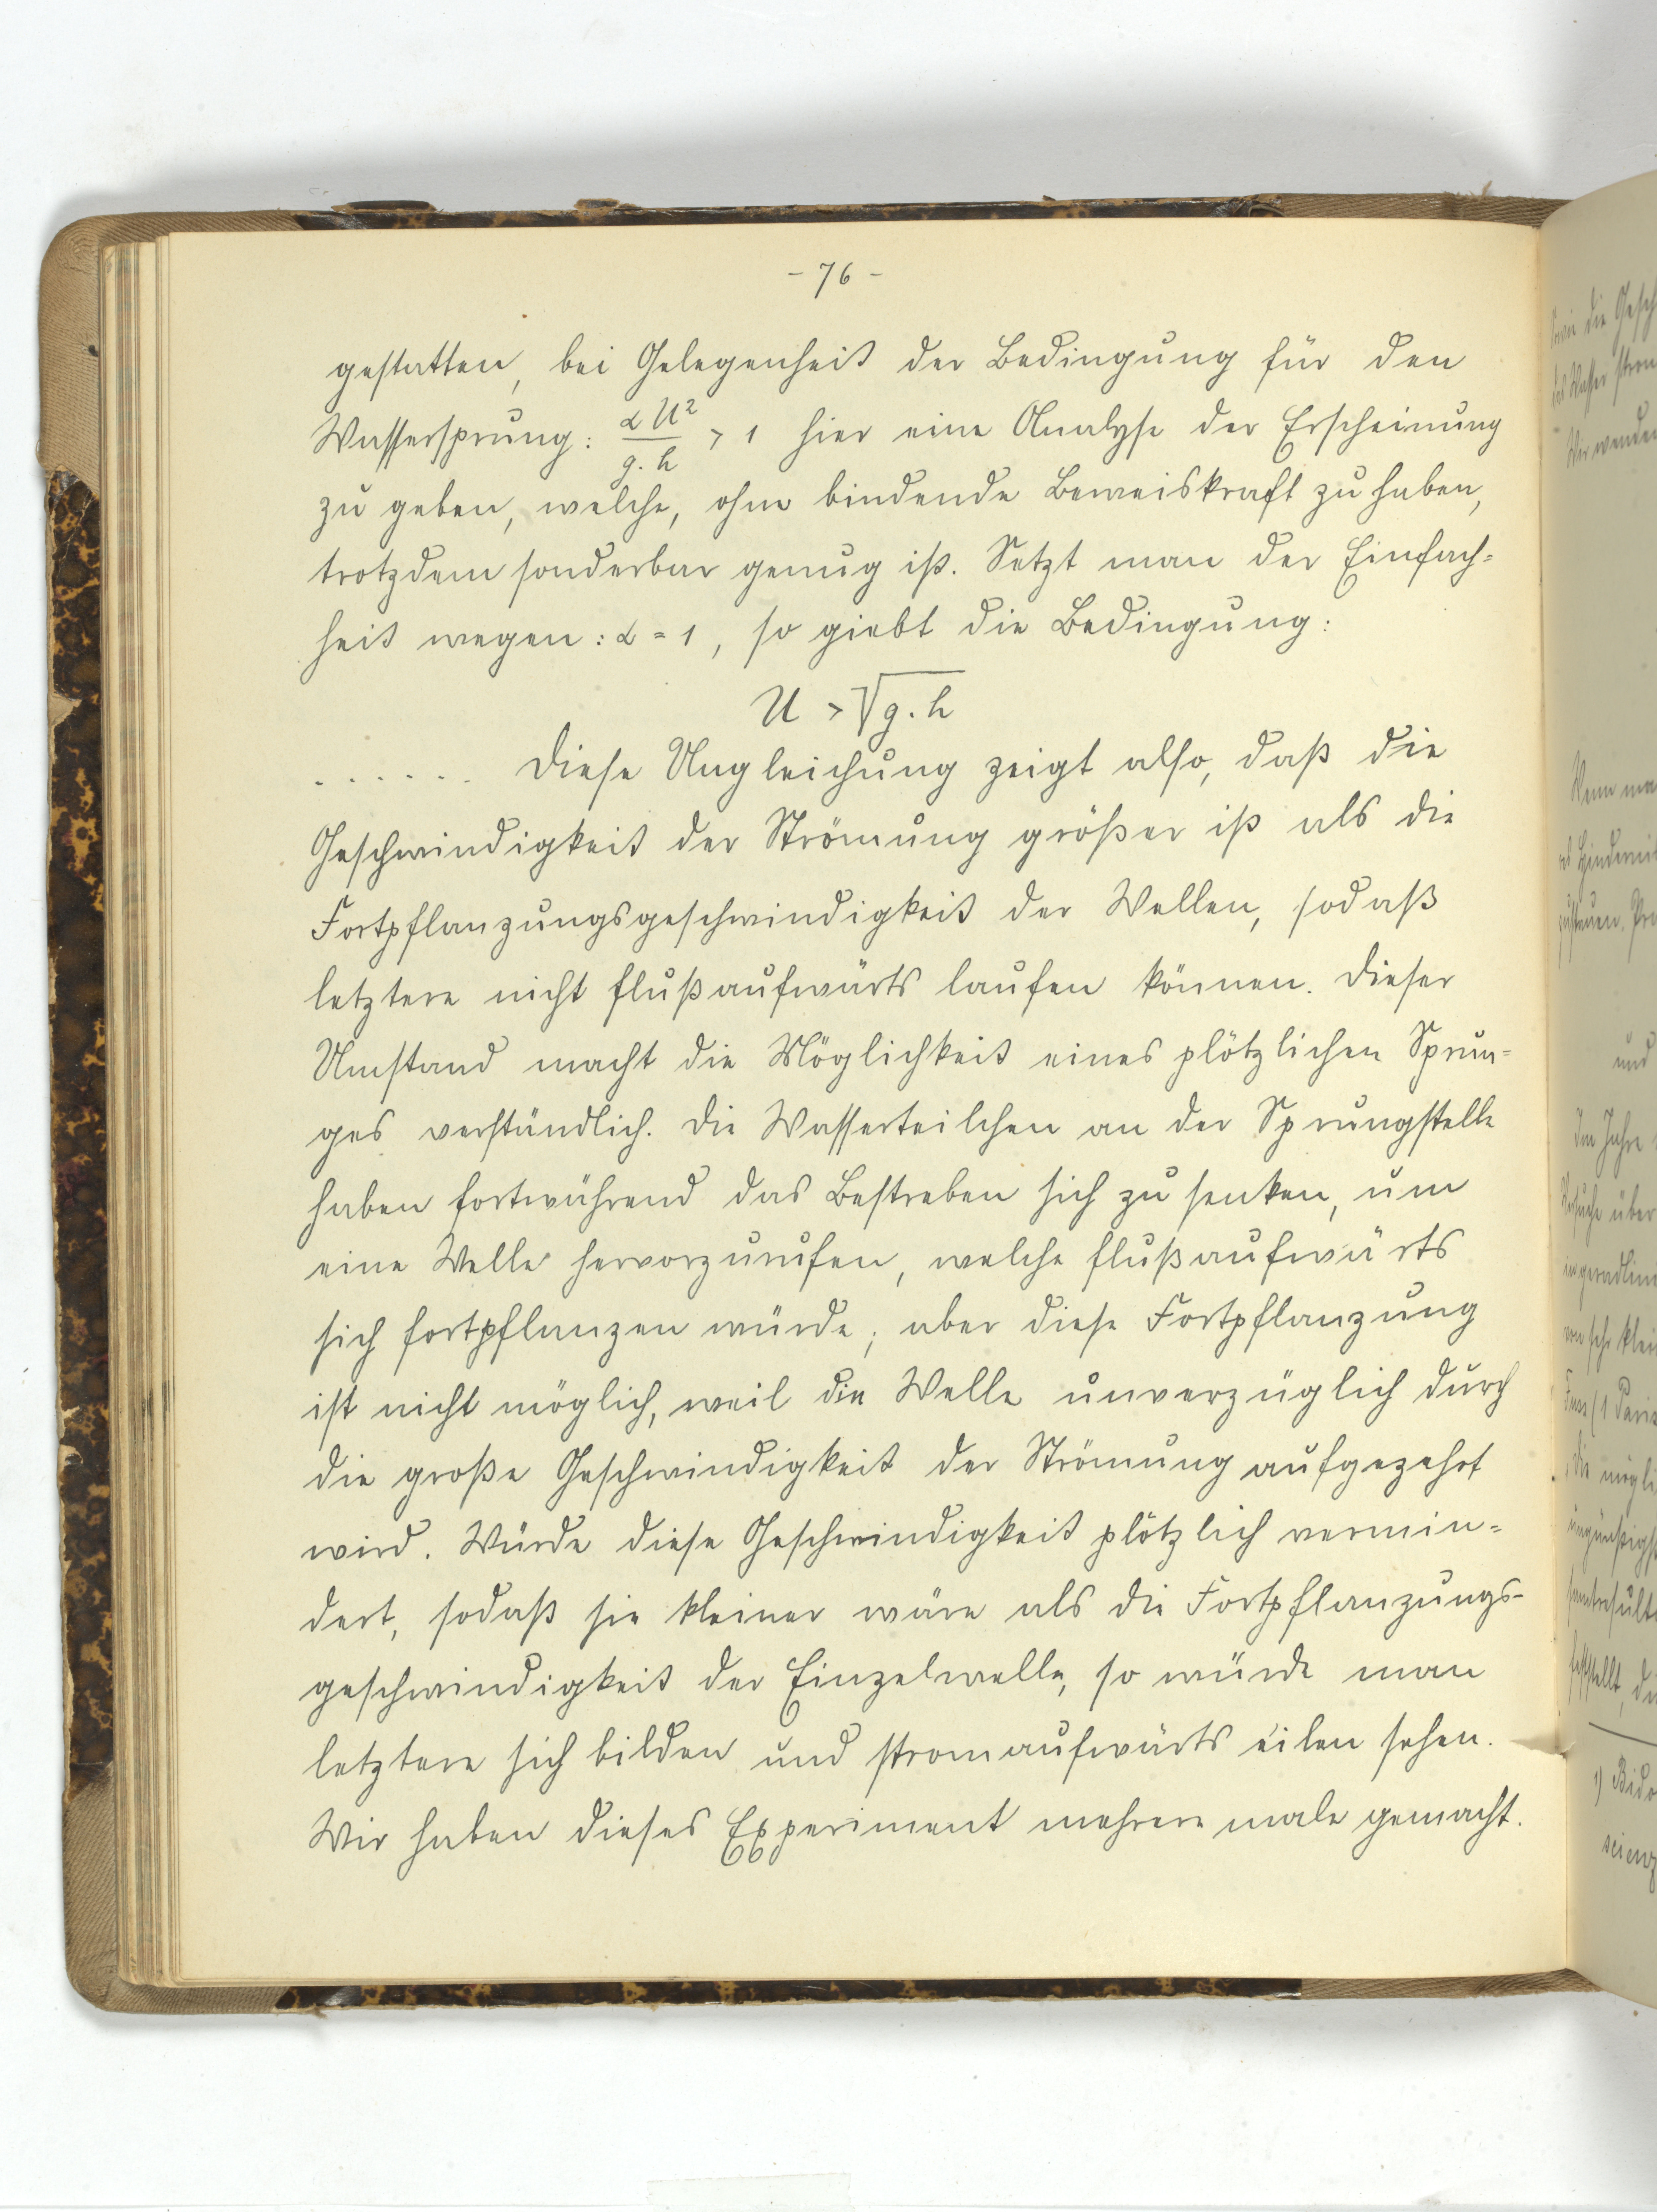 - 76 -
gestatten, bei Gelegenheit der Bedingung für den
Wassersprung: α U² / g. h > 1 hier eine Analyse der Erscheinung
zu geben, welche, ohne bindende Beweiskraft zu haben,
trotzdem sonderbar genug ist. Setzt man der Einfach=
heit wegen: α = 1, so giebt die Bedingung:
U > √g. h
. . . . . . Diese Ungleichung zeigt also, daß die
Geschwindigkeit der Strömung größer ist als die
Fortpflanzungsgeschwindigkeit der Wellen, sodaß
letztere nicht flußaufwärts laufen können. Dieser
Umstand macht die Möglichkeit eines plötzlichen Sprun=
ges verständlich. Die Wasserteilchen an der Sprungstelle
haben fortwährend das Bestreben sich zu senken, um
eine Welle hervorzurufen, welche flußaufwärts
sich fortpflanzen würde; aber diese Fortpflanzung
ist nicht möglich, weil die Welle unverzüglich durch
die große Geschwindigkeit der Strömung aufgezehrt
wird. Würde diese Geschwindigkeit plötzlich vermin=
dert, sodaß sie kleiner wäre als die Fortpflanzungs-
geschwindigkeit der Einzelwelle, so würde man
letztere sich bilden und stromaufwärts eilen sehen.
Wir haben dieses Experiment mehrere male gemacht.
sowie die
das Wasser
Wir wenden
Wenn
als
und
Im Jahre
über
sehr
die
1)